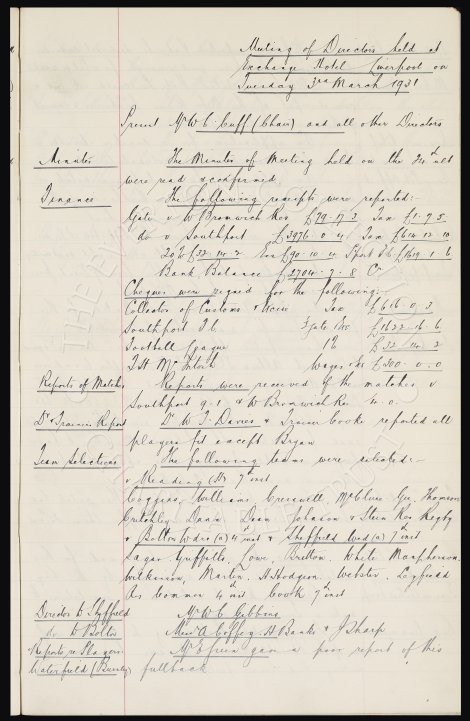 Meeting of Directors held at
Exchange Hotel Liverpool on
Tuesday 3rd March 1931
Present Mr W C Cuff (Chair) and all other Directors
Minutes The Minutes of Meeting held on the 24th ult
were read & confirmed
Finance The following receipts were reported:-
Gate v W Bromwich Res £79.17.2 Tax £1.7.5
do v Southport £3976.0.4 Tax £614.12.10
20% £32.14.2 £90.10.4 Sport F.C. £1619.1.6
Bank Balance £2704.7.8 Cr
Cheques were signed for the following:-
Collector of Customs & Excise Tax £616.0.3
Southport F.C. £1622.6.6
Football League 1% £32.14.2
T H McIntosh Wages £300.0.0
Reports of Matches Reports were received of the matches v
Southport 9-1 & W Bromwich Res 4-0
Dr & Trainers Report Dr W J Davies & Trainer Cooke reported all
players fit except Bryan
Team Selections The following teams were selected:-
v Reading (H) 7th inst
Coggins, Williams, Cresswell, McClure, Gee, Thomson
Critchley, Dunn, Dean, Johnson & Stein Res Rigby
v Bolton Wdrs (a) 4 inst & Sheffield Wed (a) 7th inst
Sagar, Griffiths, Lowe, Britton, White, Macpherson
Wilkinson, Martin, A Hodgson, Webster,
Res Common 4 inst Cook 7th inst
Director to Sheffield Mr W C Gibbins
do to Bolton Messrs A Coffey, A Banks & J Sharp
Reports re Players Mr E Green gave a poor report of this
Waterfield (Burnley) fullback